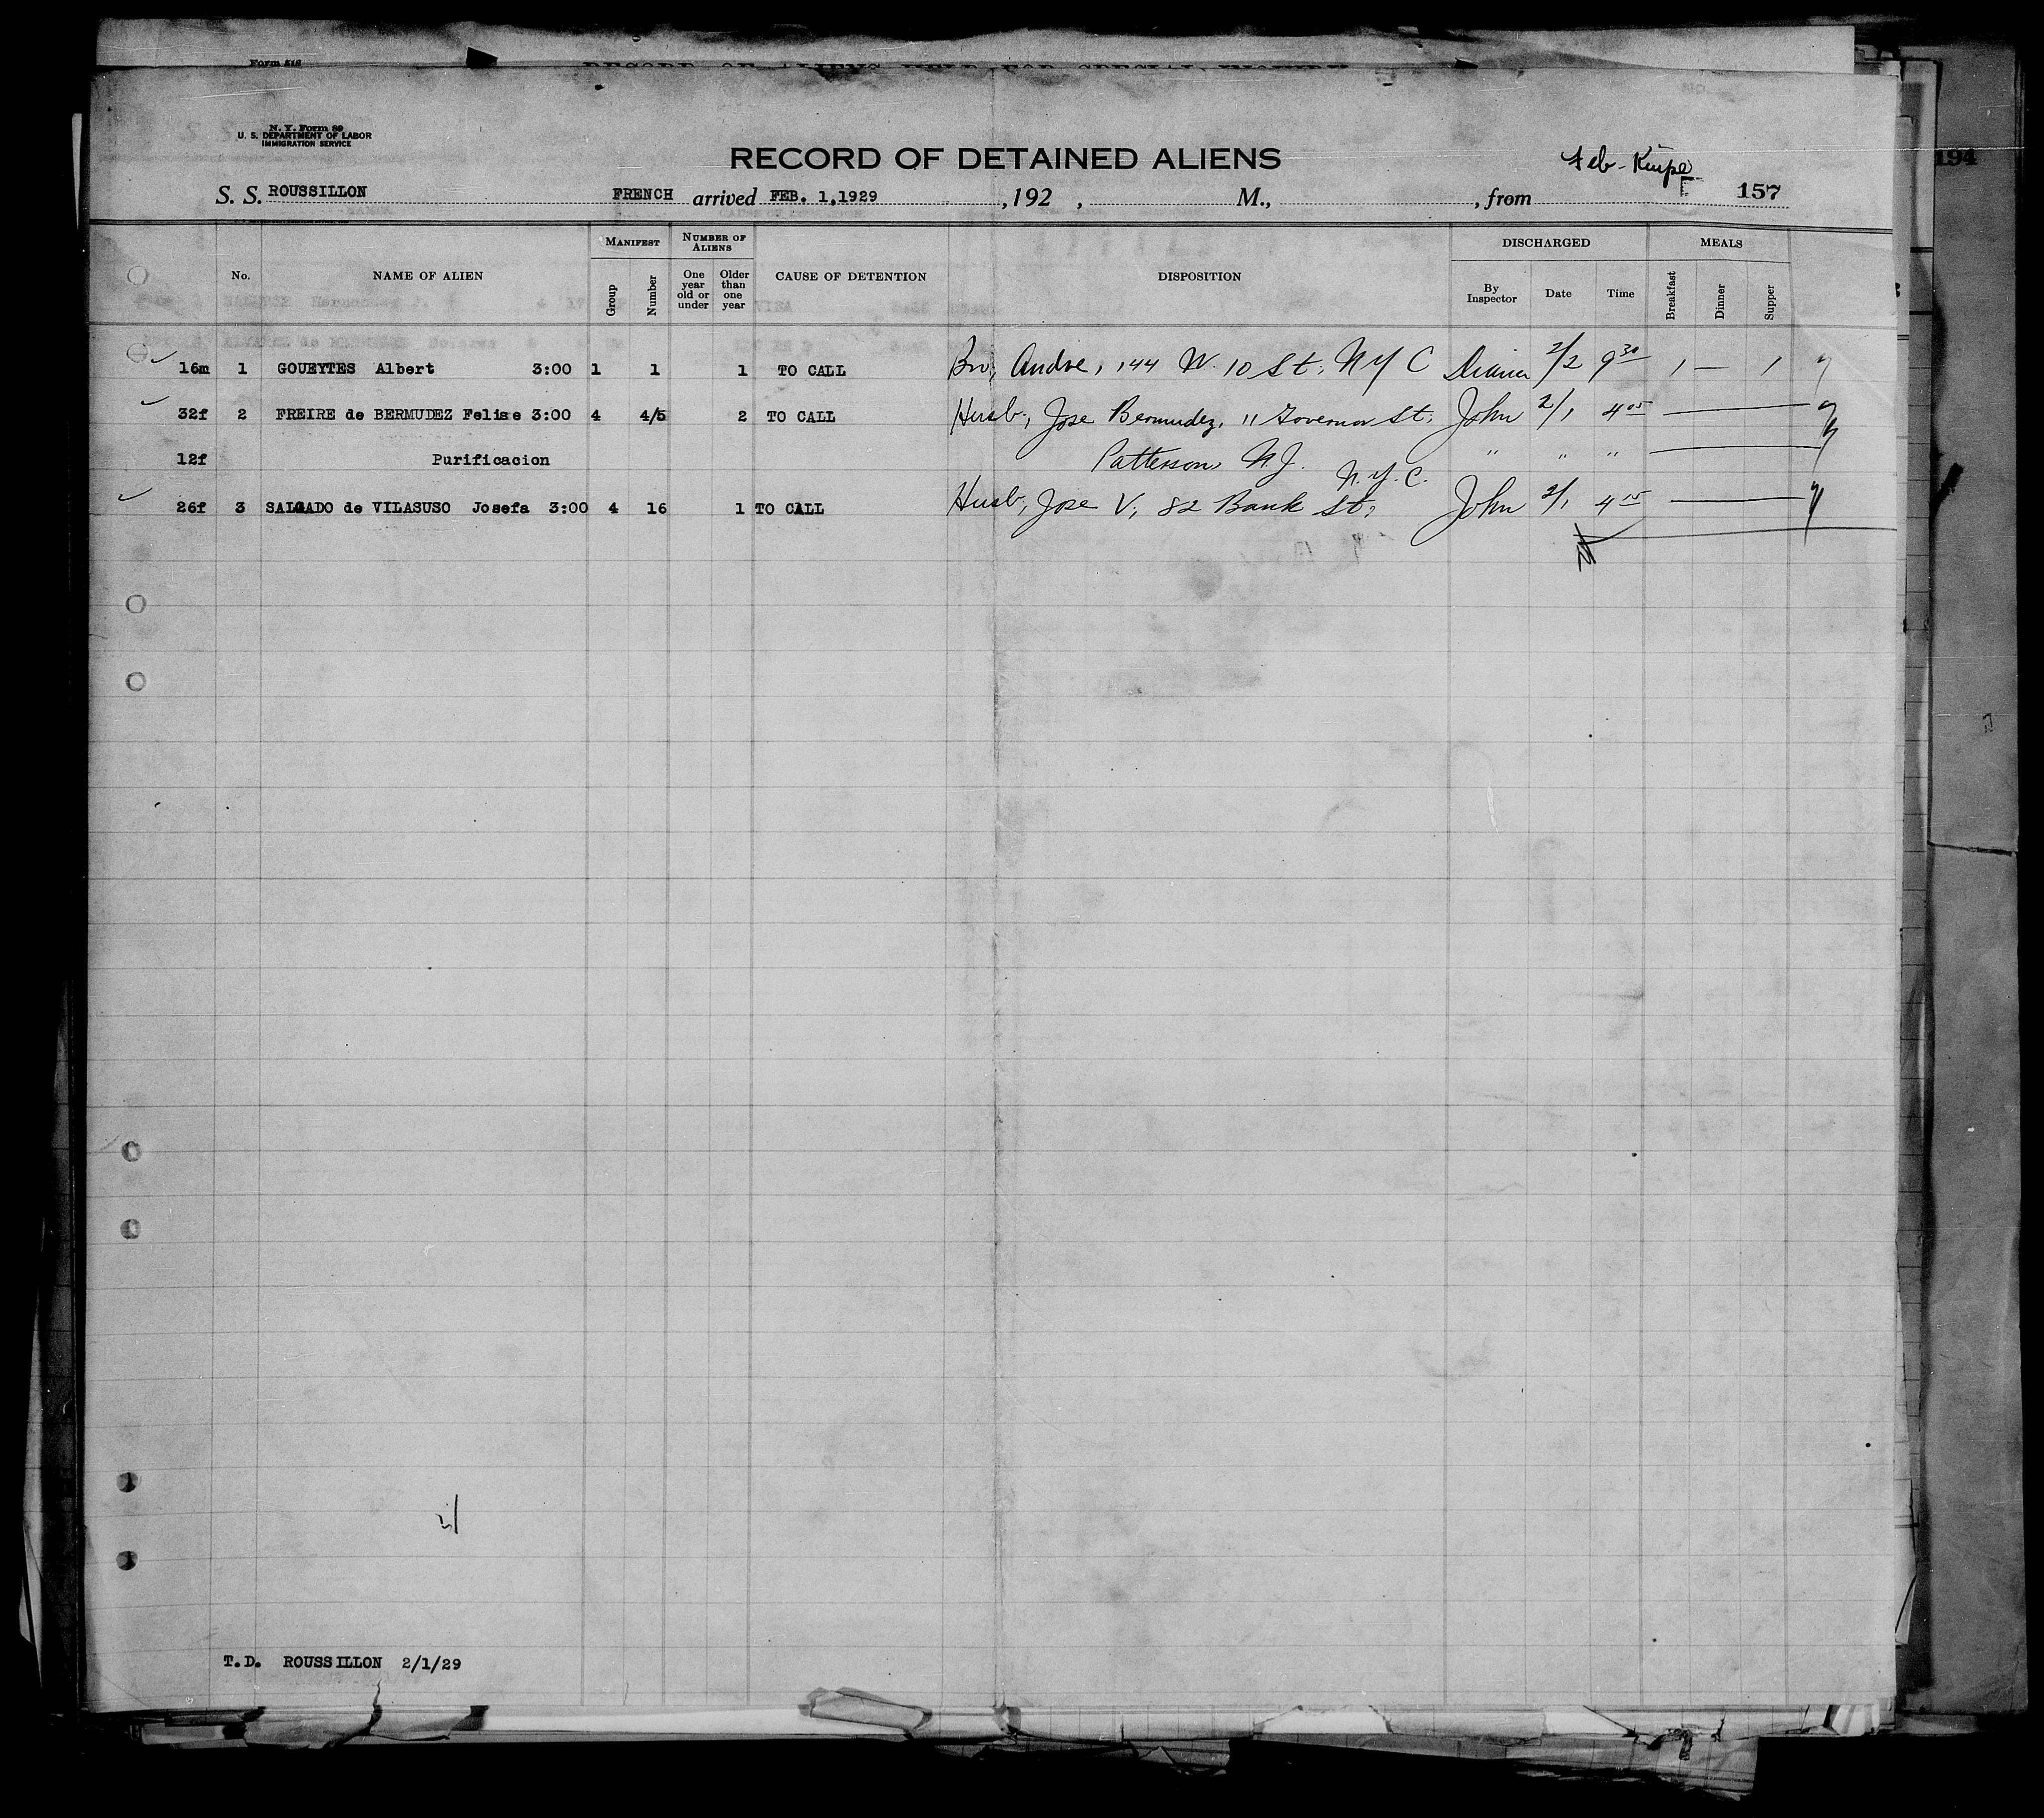 Form 518
RECORD OF ALIENS HELD FOR SPECIAL INQUIRY
N. Y. Form 89
U. S. DEPARTMENT OF LABOR
IMMIGRATION SERVICE
RECORD OF DETAINED ALIENS
194
S. S. ROUSSILLON FRENCH arrived FEB. 1,1929 , 192 , M., , from 157
No. NAME OF ALIEN MANIFEST Group Number NUMBER OF ALIENS One year old or under Older than one year CAUSE OF DETENTION DISPOSITION DISCHARGED By Inspector Date Time MEALS Breakfast Dinner Supper
16m 1 GOUEYTES Albert 3:00 1 1 1 TO CALL Bro, Andre, 144 W. 10 St, N Y C 2/2 9 30 1 — 1
32f 2 FREIRE de BERMUDEZ Felise 3:00 4 4/5 2 TO CALL Husb, Jose Bermudez, 11 Governor St, John 2/1 4 05
12f Purificacion Patterson N.J. " " "
N.Y.C.
26f 3 SALGADO de VILASUSO Josefa 3:00 4 16 1 TO CALL Husb, Jose V, 82 Bank St, John 2/1 4 15
T.D. ROUSSILLON 2/1/29